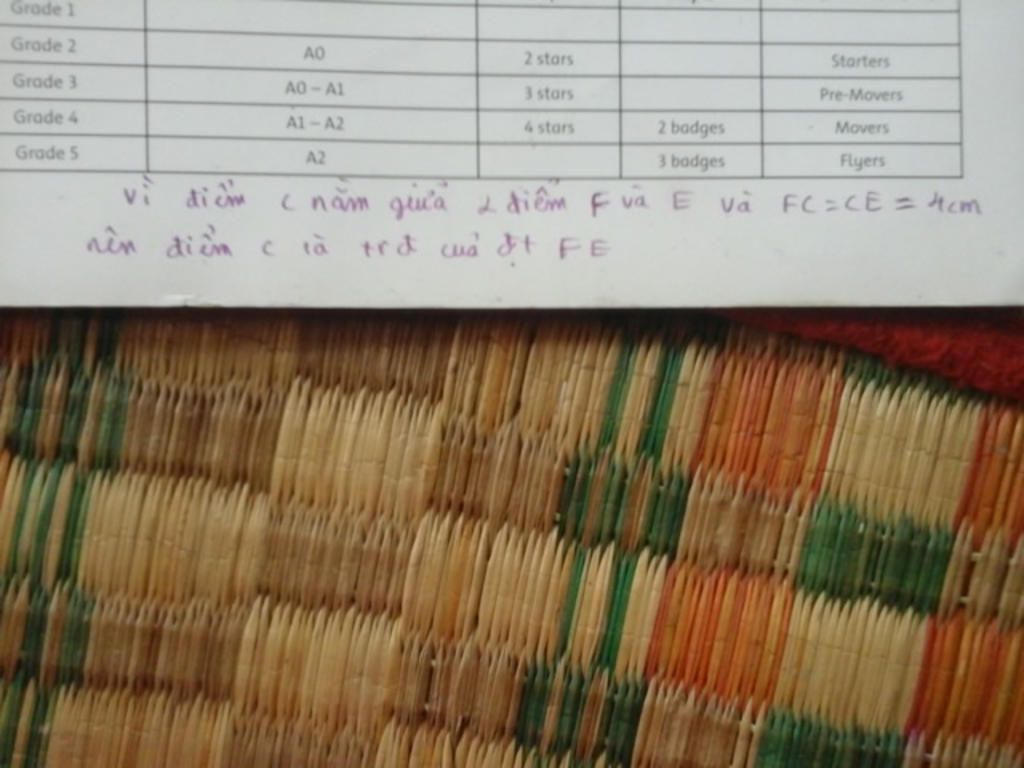 Grade 1
Grade 2 A0 2 stars Starters
Grade 3 A0 – A1 3 stars Pre-Movers
Grade 4 A1 – A2 4 stars 2 badges Movers
Grade 5 A2 3 badges Flyers
vì điểm C nằm giữa 2 điểm F và E và FC = CE = 4cm
nên điểm C là trđ của đt FE